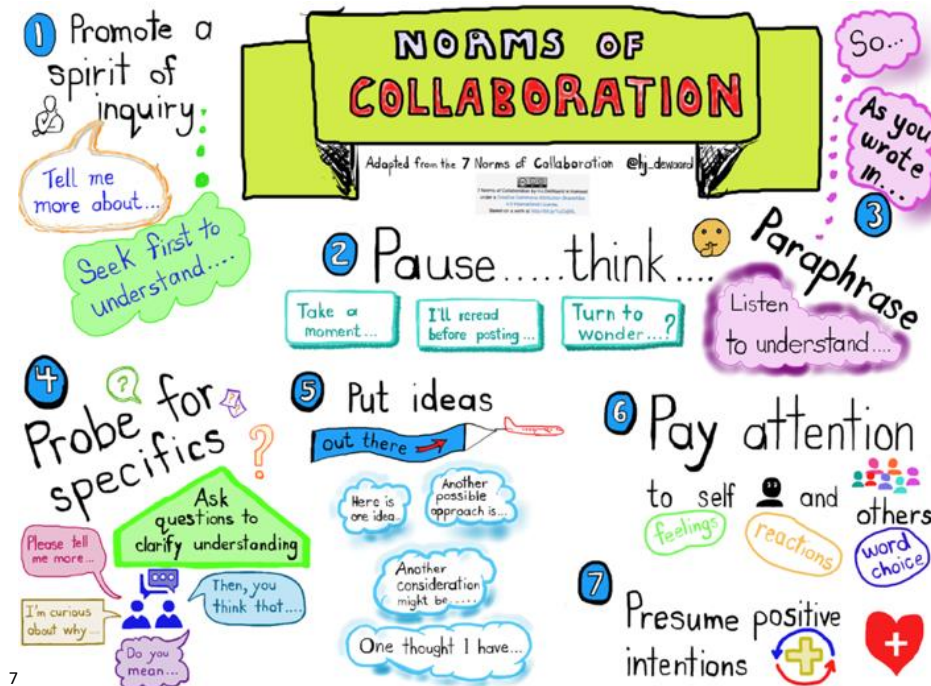 NORMS OF
COLLABORATION
Adapted from the 7 Norms of Collaboration @hj_dewaard
7 Norms of Collaboration by HJ.DeWaard is licensed
under a Creative Commons Attribution-ShareAlike
4.0 International License.
1 Promote a
spirit of
inquiry
Tell me
more about...
Seek first to
understand....
2 Pause.....think....
Take a
moment...
I'll reread
before posting...
Turn to
wonder...?
So...
As you
wrote
in...
3
Paraphrase
Listen
to understand....
4
Probe for
specifics
?
?
Ask
questions to
clarify understanding
Please tell
me more...
I'm curious
about why...
Then, you
think that....
Do you
mean....
5 Put ideas
out there
Here is
one idea..
Another
possible
approach is...
Another
consideration
might be.....
One thought I have...
6 Pay attention
to self and
others
feelings
reactions
word
choice
7
Presume positive
intentions
7